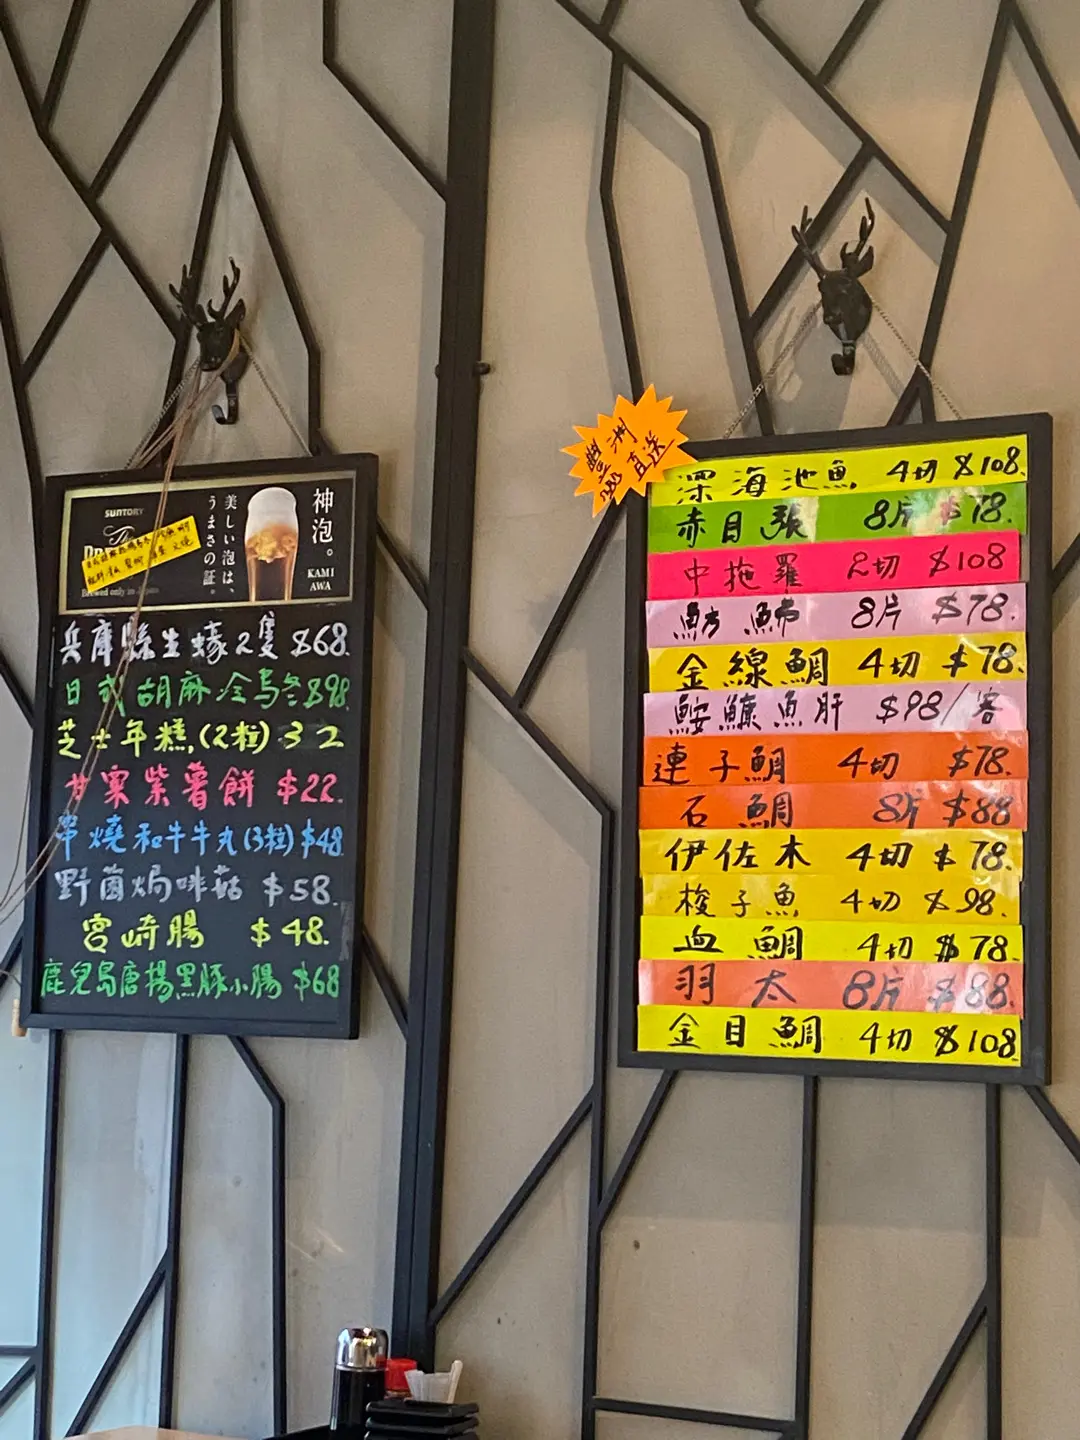 SUNTORY
The
神泡。
美しい泡は、
うまさの証。
KAMI
AWA
Brewed only in Japan
兵庫縣生蠔2隻 $68.
日式胡麻冷烏冬$98.
芝士年糕,(2粒) 32
甘栗紫薯餅 $22.
串燒和牛牛丸(3粒) $48
野菌焗啡菇 $58.
宮崎腸 $48.
鹿兒島唐揚黑豚小腸 $68
豐洲
直送
深海池魚 4切 $108.
赤目張 8片 $78.
中拖羅 2切 $108
魴鮄 8片 $78.
金線鯛 4切 $78.
鮟鱇魚肝 $98/客
連子鯛 4切 $78.
石鯛 8片 $88
伊佐木 4切 $78.
梭子魚 4切 $98.
血鯛 4切 $78.
羽太 8片 $88.
金目鯛 4切 $108.